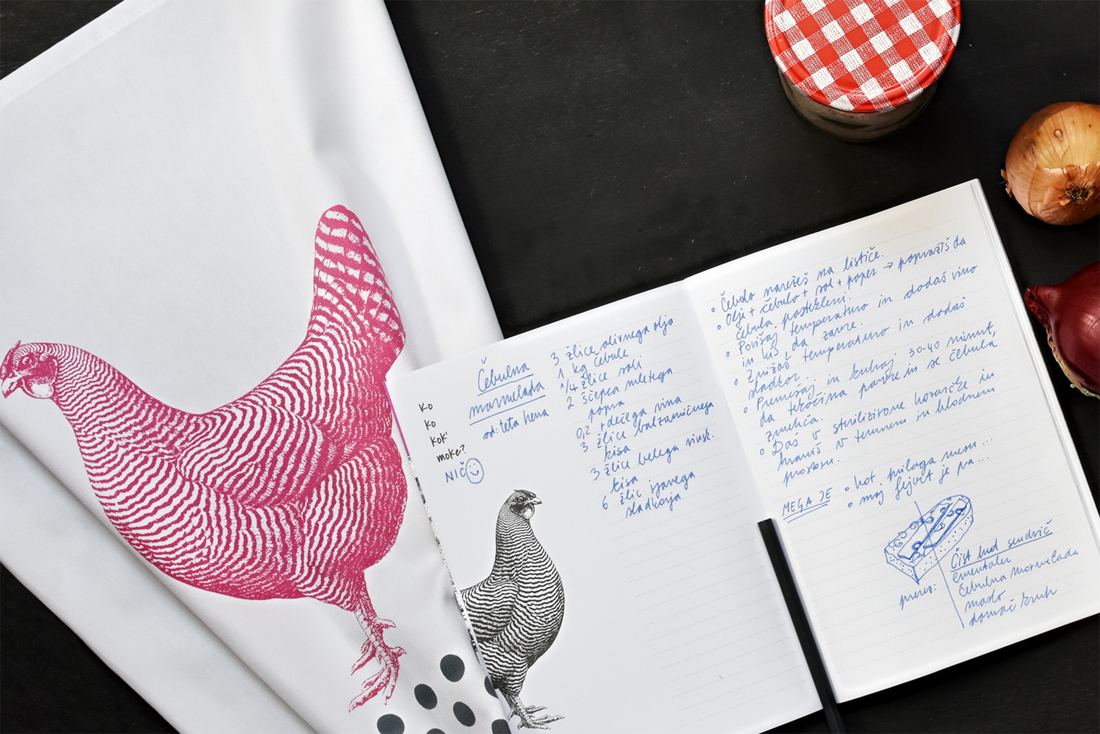 Čebulna
marmelada
od: teta Nena
ko
ko
kok
moke?
NIČ
3 žlice olivnega olja
1 kg čebule
1/4 žlice soli
2 ščepca mletega
popra
0,2 rdečega vina
3 žlice balzamičnega
kisa
3 žlice belega vinsk.
kisa
6 žlic rjavega
sladkorja
• Čebulo narežeš na lističe.
• Olje + čebulo + sol + poper → popražiš da
čebula postekleni.
• Povišaj temperaturo in dodaš vino
in kis da zavre.
• Znižaš temperaturo in dodaš
sladkor.
• Premešaj in kuhaj 30-40 minut,
da tekočina povre in se čebula
zmehča.
• Daš v sterilizirane kozarče in
hraniš v temnem in hladnem
prostoru.
MEGA JE
• kot priloga mesu...
• moj fejvrit je pa...
prerez:
Čist hud sendvič
ementaler
čebulna marmelada
maslo
domač kruh